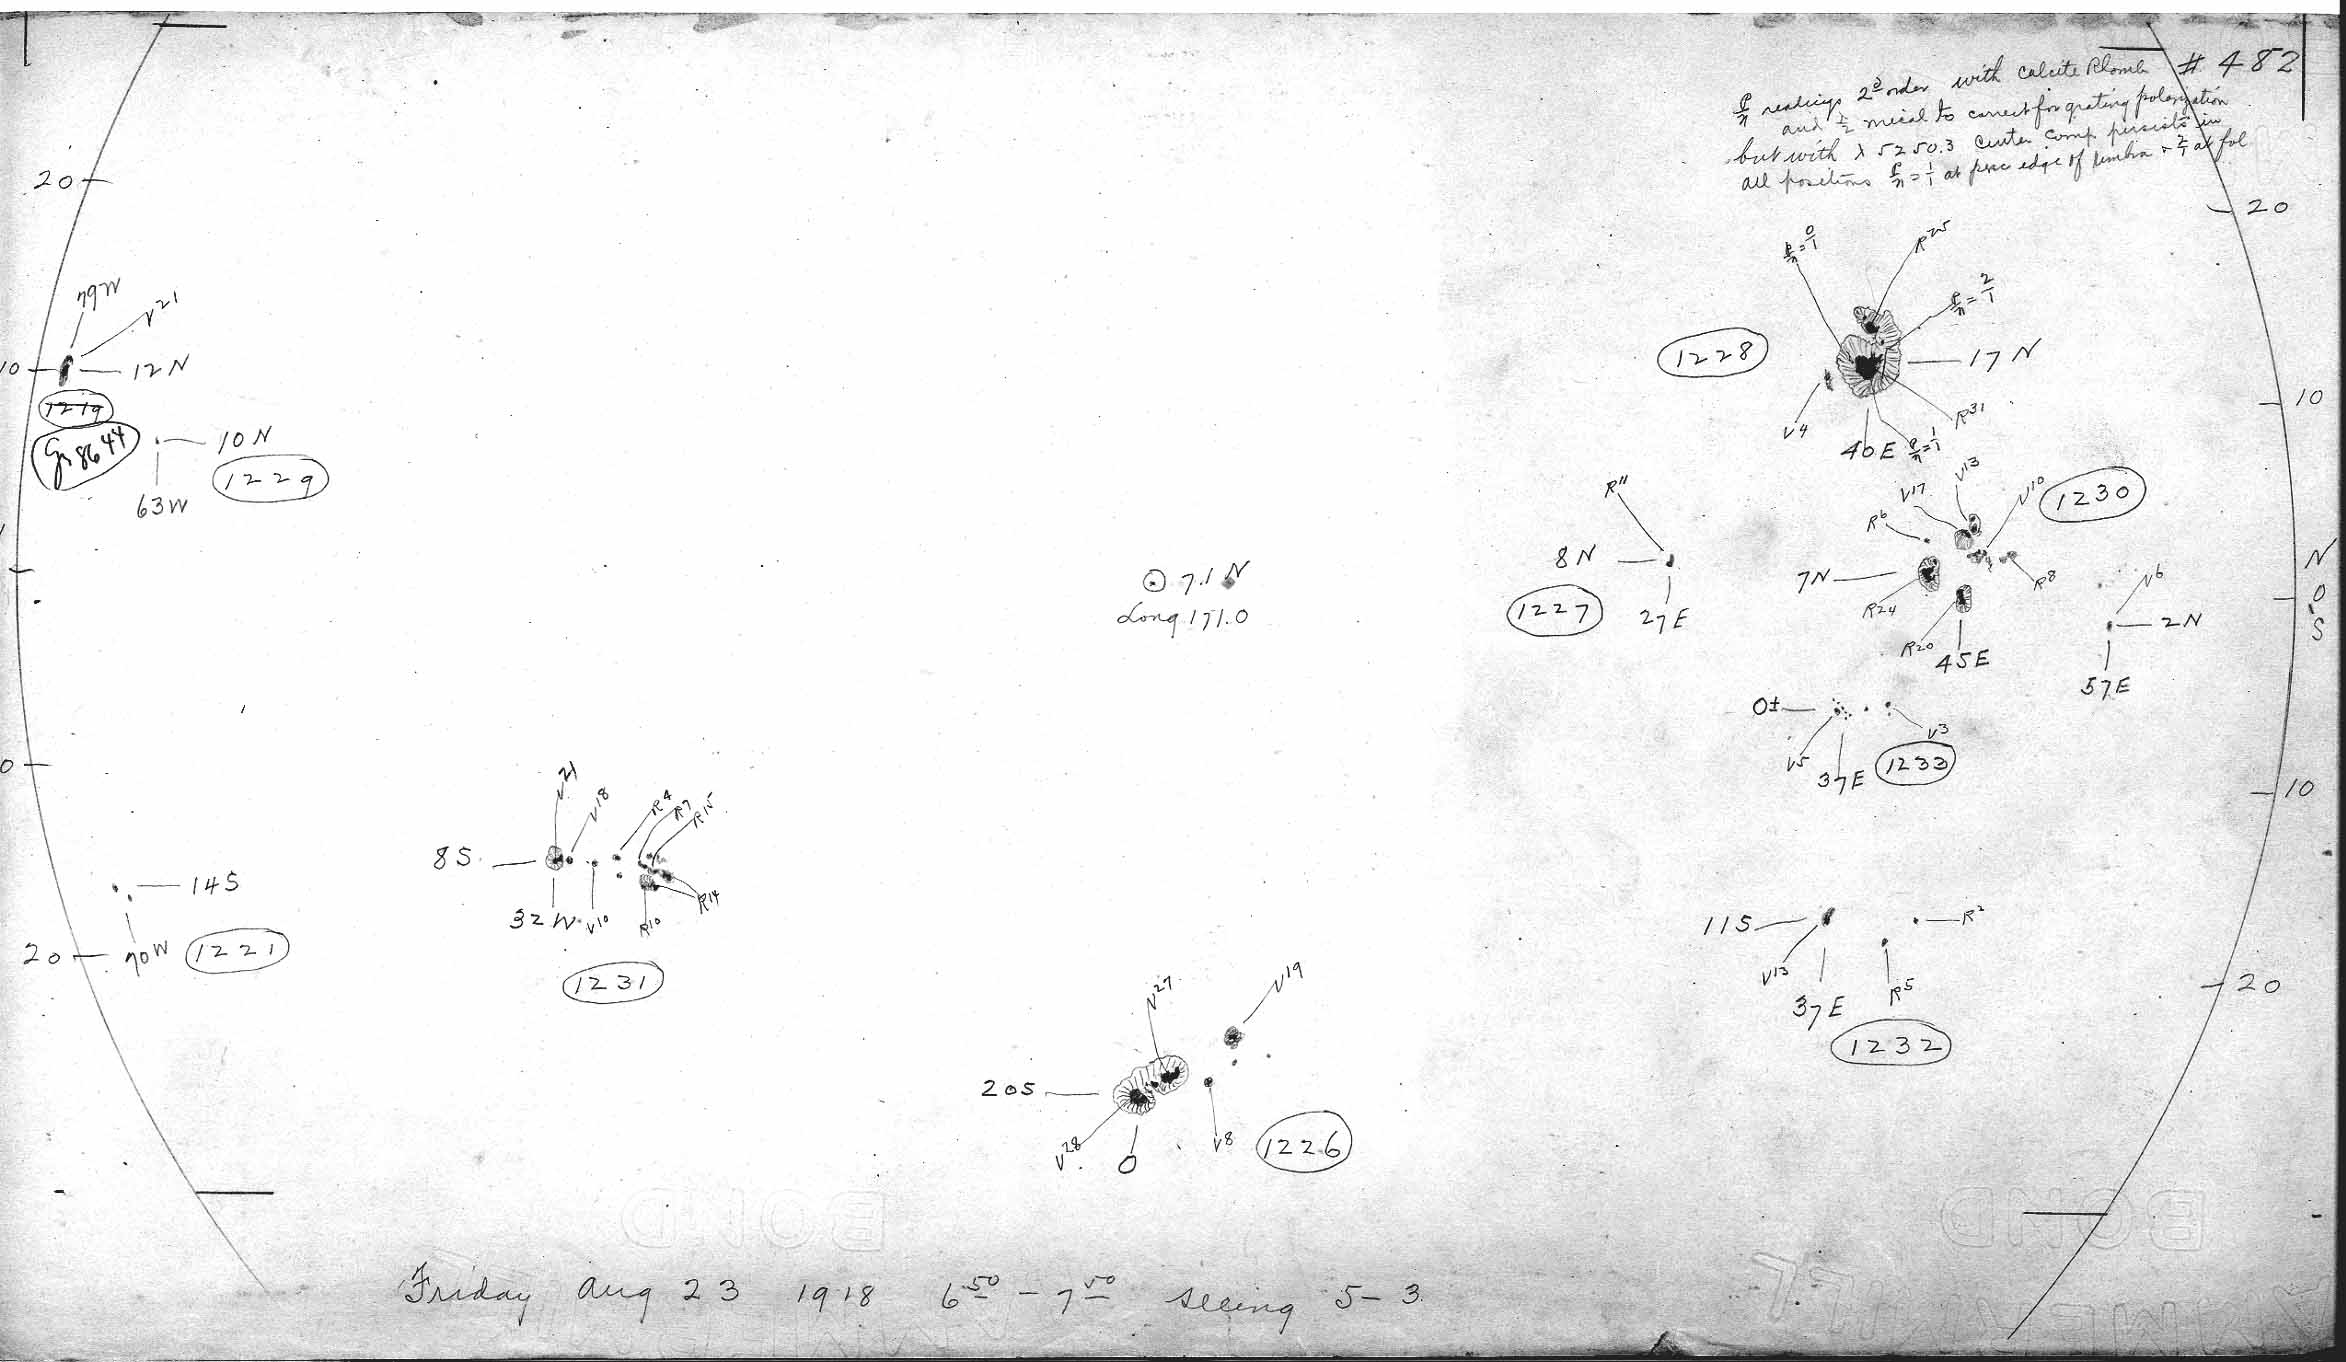 # 482
readings 2d order with Calcite Rhomb
and to correct for grating polarization
but with λ 5250.3 center comp. persists in
all positions p/n = 1/1 at prec edge of umbra + 2/1 at fol
20
20
79W
V21
10
12N
1219
Gr 8644
10N
1229
63W
p/n = 0/1
R25
p/n = 2/1
1228
17N
10
V4
R31
40E
p/n = 1/1
R11
8N
1227
27E
V13
V17
V10
1230
R6
7N
R24
R8
R20
45E
V6
2N
57E
N
0
S
⊙ 7.1 N
Long 171.0
0±
V5
V3
37E
1233
0
10
V21
V18
R4
R7
R15
8S
32W
V10
R10
R14
1231
14S
20
70W
1221
11S
R2
V13
37E
R5
1232
20
V27
V19
20S
V28
0
V8
1226
BOND
BOND
Friday Aug 23 1918 6 50 - 7 50 seeing 5-3